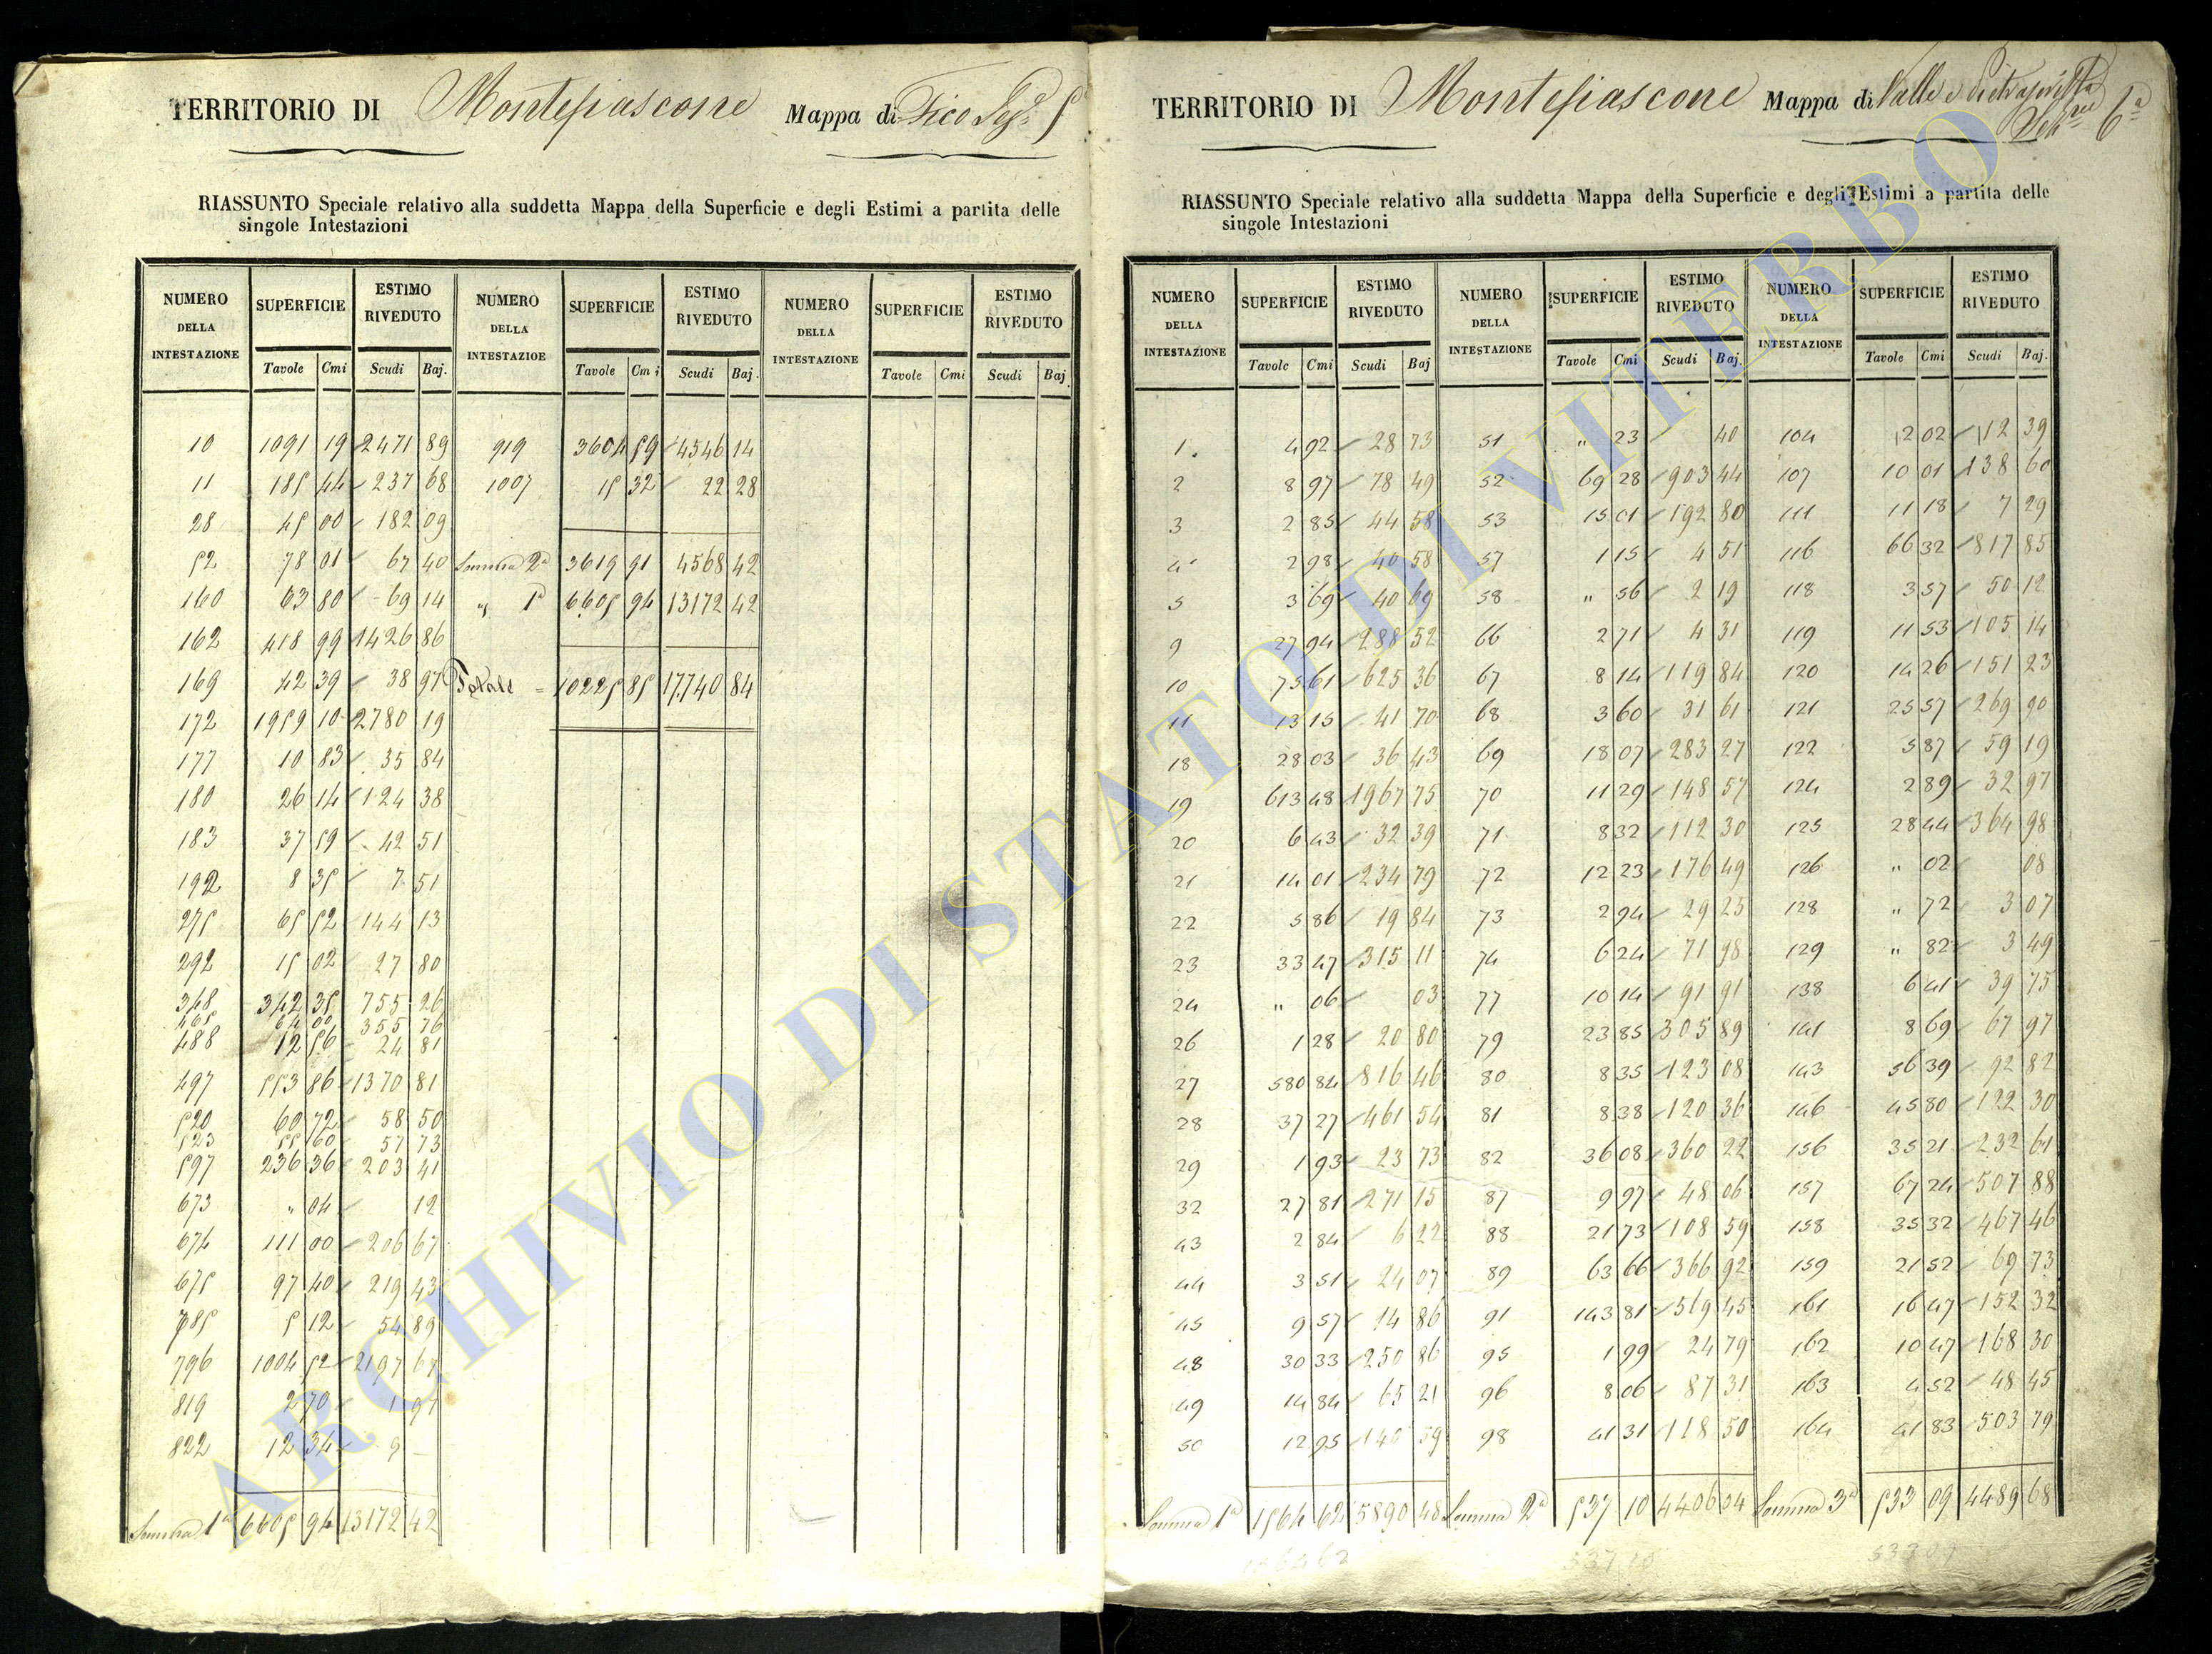 TERRITORIO DI Montefiascone Mappa di Fico Sez. 5
RIASSUNTO Speciale relativo alla suddetta Mappa della Superficie e degli Estimi a partita delle
singole Intestazioni
NUMERO DELLA INTESTAZIONE SUPERFICIE ESTIMO RIVEDUTO NUMERO DELLA INTESTAZIOE SUPERFICIE ESTIMO RIVEDUTO NUMERO DELLA INTESTAZIONE SUPERFICIE ESTIMO RIVEDUTO
Tavole Cmi Scudi Baj. Tavole Cmi Scudi Baj. Tavole Cmi Scudi Baj.
10 1091 19 2471 89 919 3604 59 4546 14
11 185 44 237 68 1007 15 32 22 28
28 45 00 182 09
52 78 01 67 40 Somma 2a 3619 91 4568 42
160 63 80 69 14 " 1a 6605 94 13172 42
162 418 99 1426 86
169 42 39 38 97 Totale = 10225 85 17740 84
172 1959 10 2780 19
177 10 83 35 84
180 26 14 124 38
183 37 59 42 51
192 8 35 7 51
275 65 52 144 13
292 15 02 27 80
348 342 35 755 26
465 64 00 355 76
488 12 56 24 81
497 553 86 1370 81
520 60 72 58 50
523 55 60 57 73
597 236 36 203 41
673 " 04 12
674 111 00 206 67
675 97 40 219 43
785 5 12 54 89
796 1004 52 2197 67
819 2 70 1 97
822 12 34 9 —
Somma 1a 6605 94 13172 42
TERRITORIO DI Montefiascone Mappa di Valle e Pietrafitta
Sezne 6a
RIASSUNTO Speciale relativo alla suddetta Mappa della Superficie e degli Estimi a partita delle
singole Intestazioni
NUMERO DELLA INTESTAZIONE SUPERFICIE ESTIMO RIVEDUTO NUMERO DELLA INTESTAZIONE SUPERFICIE ESTIMO RIVEDUTO NUMERO DELLA INTESTAZIONE SUPERFICIE ESTIMO RIVEDUTO
Tavole Cmi Scudi Baj Tavole Cmi Scudi Baj. Tavole Cmi Scudi Baj.
1 4 92 28 73 51 " 23 40 104 12 02 112 39
2 8 97 78 49 52 69 28 903 44 107 10 01 138 60
3 2 85 44 58 53 15 01 192 80 111 11 18 7 29
4 2 98 40 58 57 1 15 4 51 116 66 32 817 85
5 3 69 40 69 58 " 56 2 19 118 3 57 50 12
9 27 94 288 52 66 2 71 4 31 119 11 53 105 14
10 75 61 625 36 67 8 14 119 84 120 14 26 151 23
11 13 15 41 70 68 3 60 31 61 121 25 57 269 90
18 28 03 36 43 69 18 07 283 27 122 5 87 59 19
19 613 48 1967 75 70 11 29 148 57 124 2 89 32 97
20 6 43 32 39 71 8 32 112 30 125 28 44 364 98
21 14 01 234 79 72 12 23 176 49 126 " 02 08
22 5 86 19 84 73 2 94 29 25 128 " 72 3 07
23 33 47 315 11 74 6 24 71 98 129 " 82 3 49
24 " 06 03 77 10 14 91 91 138 6 41 39 75
26 1 28 20 80 79 23 85 305 89 141 8 69 67 97
27 580 84 816 46 80 8 35 123 08 143 56 39 92 82
28 37 27 461 54 81 8 38 120 36 146 45 80 122 30
29 1 93 23 73 82 36 08 360 22 156 35 21 232 61
32 27 81 271 15 87 9 97 48 06 157 67 24 507 88
43 2 84 6 22 88 21 73 108 59 158 35 32 467 46
44 3 51 24 07 89 63 66 366 92 159 21 52 69 73
45 9 57 14 86 91 143 81 519 45 161 16 47 152 32
48 30 33 250 86 95 1 99 24 79 162 10 47 168 30
49 14 84 65 21 96 8 06 87 31 163 4 52 48 45
50 12 95 140 59 98 41 31 118 50 164 41 83 503 79
Somma 1a 1564 62 5890 48 Somma 2a 537 10 4406 04 Somma 3a 533 09 4489 68
1564 62 537 10 533 09
ARCHIVIO DI STATO DI VITERBO